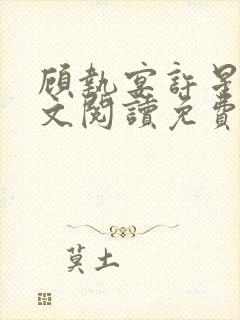 顧執宴許星
文閱讀免費
莫土